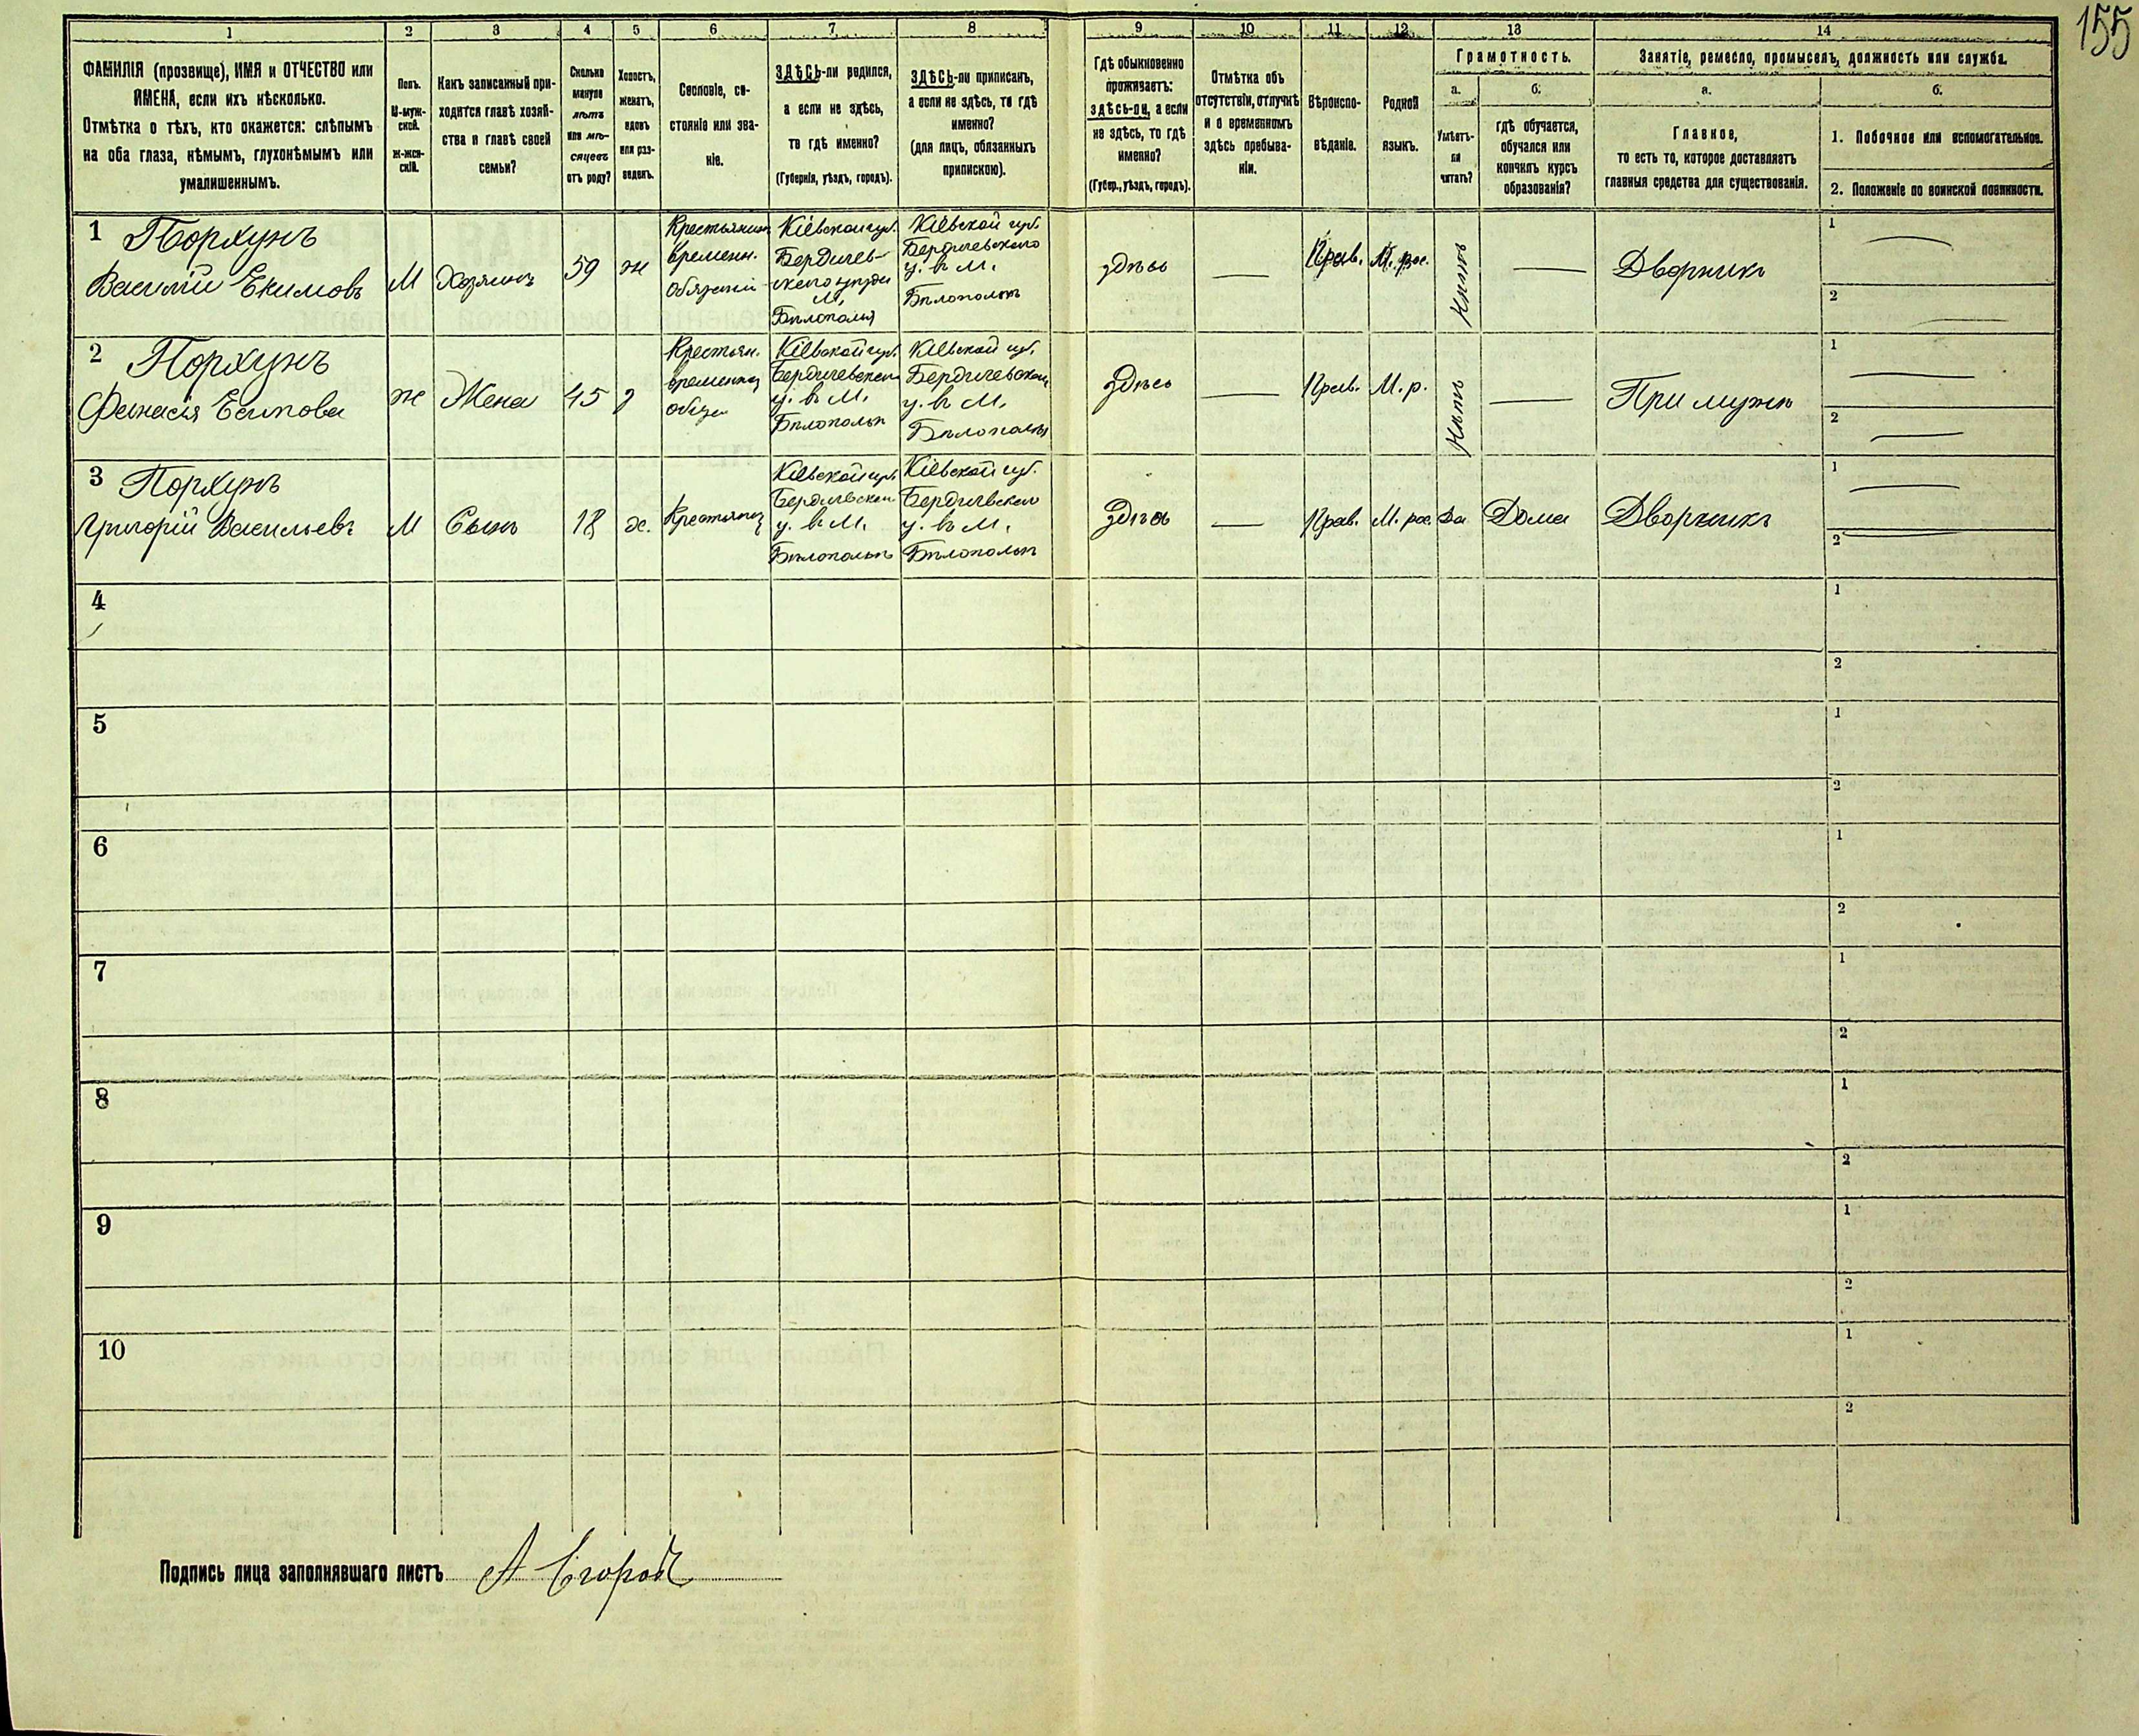 155
1 2 3 4 5 6 7 8 9 10 11 12 13 14
ФАМИЛІЯ (прозвище), ИМЯ и ОТЧЕСТВО или
ИМЕНА, если ихъ нѣсколько.
Отмѣтка о тѣхъ, кто окажется: слѣпымъ
на оба глаза, нѣмымъ, глухонѣмымъ или
умалишеннымъ.
Полъ.
М-муж-
ской.
Ж-жен-
скій.
Какъ записанный при-
ходится главѣ хозяй-
ства и главѣ своей
семьи?
Сколько
минуло
лѣтъ
или мѣ-
сяцевъ
отъ роду?
Холостъ,
женатъ,
вдовъ
или раз-
веденъ.
Сословіе, со-
стояніе или зва-
ніе.
ЗДѢСЬ-ли родился,
а если не здѣсь,
то гдѣ именно?
(Губернія, уѣздъ, городъ).
ЗДѢСЬ-ли приписанъ,
а если не здѣсь, то гдѣ
именно?
(для лицъ, обязанныхъ
припискою).
Гдѣ обыкновенно
проживаетъ:
здѣсь-ли, а если
не здѣсь, то гдѣ
именно?
(Губер., уѣздъ, городъ).
Отмѣтка объ
отсутствіи, отлучкѣ
и о временномъ
здѣсь пребыва-
ніи.
Вѣроиспо-
вѣданіе.
Родной
языкъ.
Грамотность.
а.
Умѣетъ-
ли
читать?
б.
гдѣ обучается,
обучался или
кончилъ курсъ
образованія?
Занятіе, ремесло, промыселъ, должность или служба.
а.
Главное,
то есть то, которое доставляетъ
главныя средства для существованія.
б.
1. Побочное или вспомогательное.
2. Положеніе по воинской повинности.
1
Порхунъ
Василій Екимовъ
М
Хозяинъ
59
ж
Крестьянинъ
временн.
обязан
Кіевской губ.
Бердичев-
скаго уѣзда
М.
Бѣлополья
Кіевской губ.
Бердичевскаго
у. въ М.
Бѣлопольѣ
здѣсь
Прав.
М. рос.
Дворникъ
1
2
2
Порхунъ
ж
Жена
45
з
Крестьян.
Кіевской губ.
Бердичевскаго
у. въ М.
Бѣлопольѣ
Кіевской губ.
Бердичевскаго
у. въ М.
Бѣлопольѣ
здѣсь
Прав.
М. р.
Нѣтъ
При мужѣ
1
2
3
Порхунъ
Григорій Васильевъ
М
Сынъ
18
х.
Крестьянинъ
Кіевской губ.
Бердичевскаго
у. въ М.
Бѣлопольѣ
Кіевской губ.
Бердичевскаго
у. въ М.
Бѣлопольѣ
здѣсь
Прав.
М. рос.
Да
Дома
Дворникъ
1
2
4
1
2
5
1
2
6
1
2
7
1
2
8
1
2
9
1
2
10
1
2
Подпись лица заполнявшаго листъ